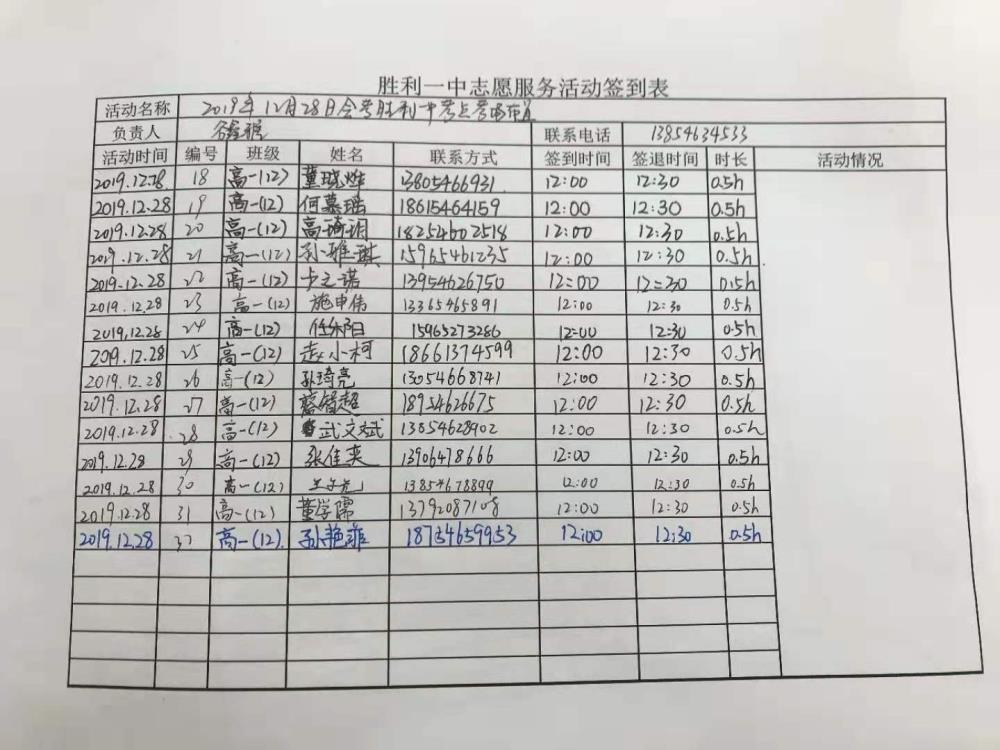 胜利一中志愿服务活动签到表
活动名称 2019年12月28日会考胜利一中考点考场布置
负责人 联系电话 13854634533
活动时间 编号 班级 姓名 联系方式 签到时间 签退时间 时长 活动情况
2019.12.28 18 高一(12) 董晓烨 13805466931 12:00 12:30 0.5h
2019.12.28 19 高一(12) 何慕瑶 18615464159 12:00 12:30 0.5h
2019.12.28 20 高一(12) 高琦玥 18254602518 12:00 12:30 0.5h
2019.12.28 21 高一(12) 孙雅琪 15965461235 12:00 12:30 0.5h
2019.12.28 22 高一(12) 卞之诺 13954626750 12:00 12:30 0.5h
2019.12.28 23 高一(12) 施申伟 13365465891 12:00 12:30 0.5h
2019.12.28 24 高一(12) 任乐阳 15965273286 12:00 12:30 0.5h
2019.12.28 25 高一(12) 赵小柯 18661374599 12:00 12:30 0.5h
2019.12.28 26 高一(12) 孙琦亮 13054668741 12:00 12:30 0.5h
2019.12.28 27 高一(12) 智超 18954626675 12:00 12:30 0.5h
2019.12.28 28 高一(12) 武文斌 13854628902 12:00 12:30 0.5h
2019.12.28 29 高一(12) 张佳奕 13906478666 12:00 12:30 0.5h
2019.12.28 30 高一(12) 13854678899 12:00 12:30 0.5h
2019.12.28 31 高一(12) 董学儒 13792087108 12:00 12:30 0.5h
2019.12.28 32 高一(12) 孙艳菲 18754659953 12:00 12:30 0.5h